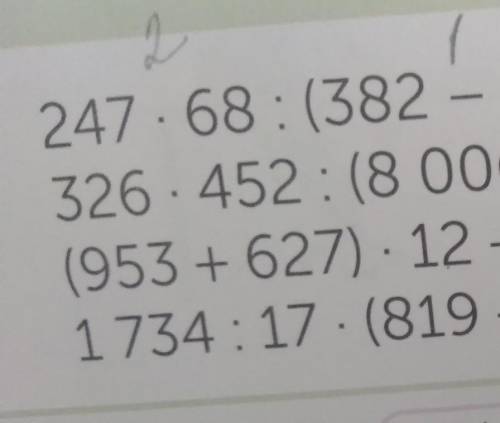 2 1
247 · 68 : (382 −
326 · 452 : (8 00
(953 + 627) · 12
1 734 : 17 · (819